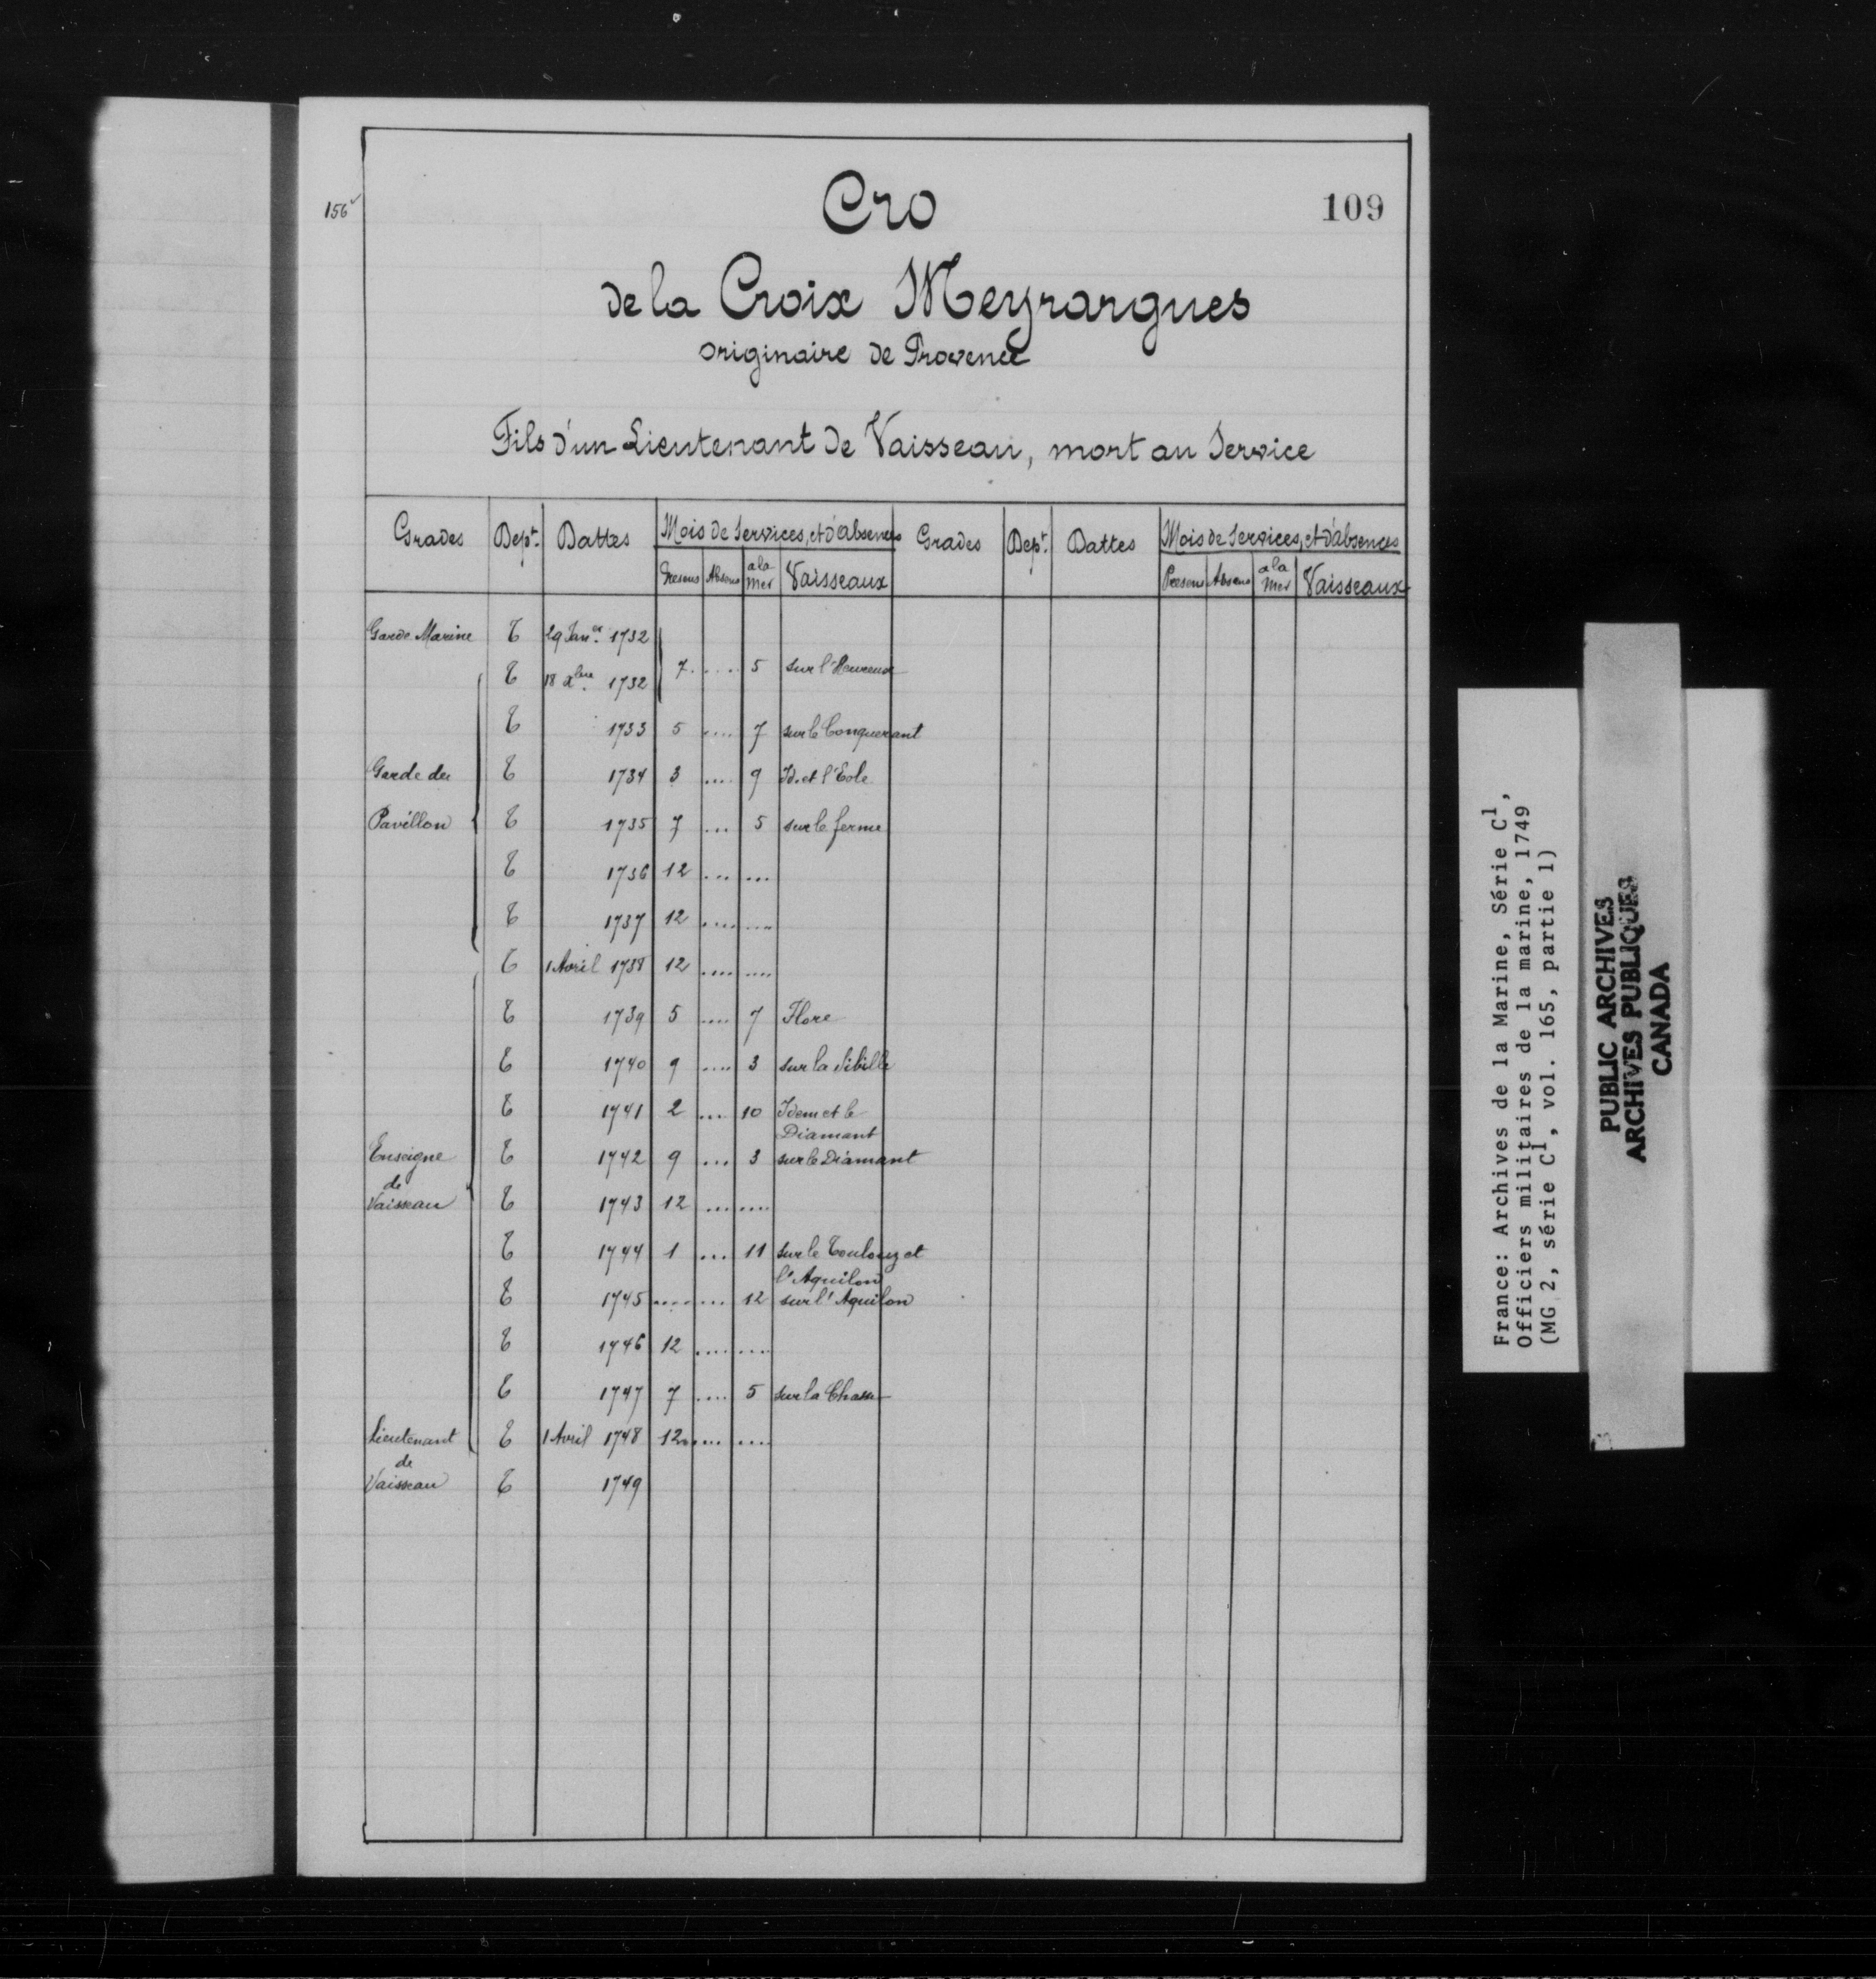 156
109
Cro
de la Croix Meyrargues
originaire de Provence
Fils d'un Lieutenant de Vaisseau, mort au Service
Grades Dept. Dattes Mois de Services, et d'absences Grades Dept. Dattes Mois de Services, et d'absences
Presens Absens a la mer Vaisseaux Presens Absens a la mer Vaisseaux
Garde Marine T 29 Janer. 1732
T 18 Xbre. 1732 7. .... 5 sur l'Heureux
T 1733 5 .... 7 sur le Conquerant
Garde du T 1734 3 .... 9 Id. et l'Eole
Pavillon T 1735 7 ... 5 sur le ferme
T 1736 12 ... ...
T 1737 12 .... ....
T 1 Avril 1738 12 .... ....
T 1739 5 .... 7 Flore
T 1740 9 .... 3 sur la Sibille
T 1741 2 .... 10 Idem et le
Diamant
Enseigne T 1742 9 ... 3 sur le Diamant
de
Vaisseau T 1743 12 ... ....
T 1744 1 ... 11 sur le Toulouze et
l'Aquilon
T 1745 .... ... 12 sur l'Aquilon
T 1746 12 .... ....
T 1747 7 .... 5 sur la Chasse
Lieutenant T 1 Avril 1748 12 .... ....
de
Vaisseau T 1749
France: Archives de la Marine, Série C1,
Officiers militaires de la marine, 1749
(MG 2, série C1, vol. 165, partie 1)
PUBLIC ARCHIVES
ARCHIVES PUBLIQUES
CANADA